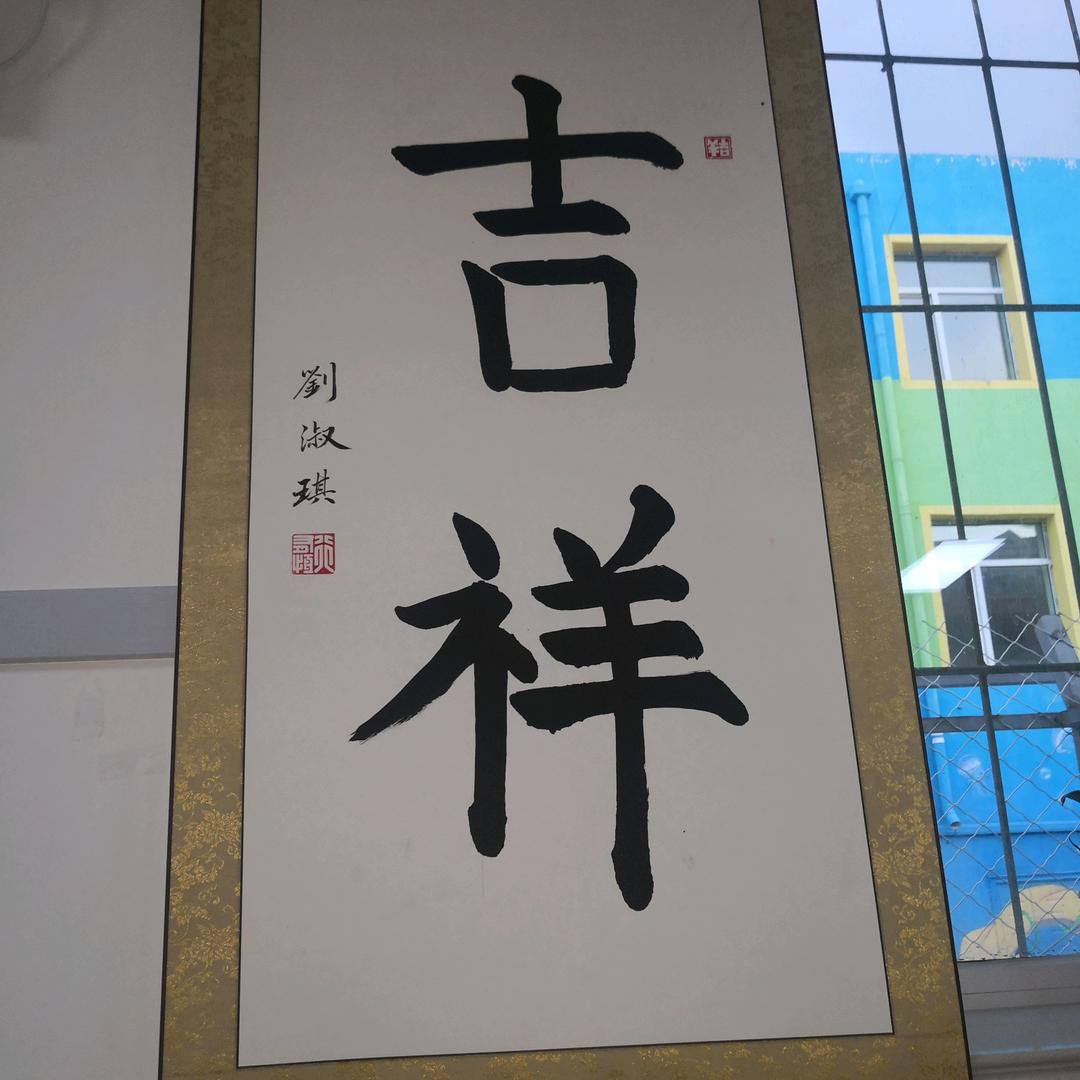 吉祥
劉淑琪